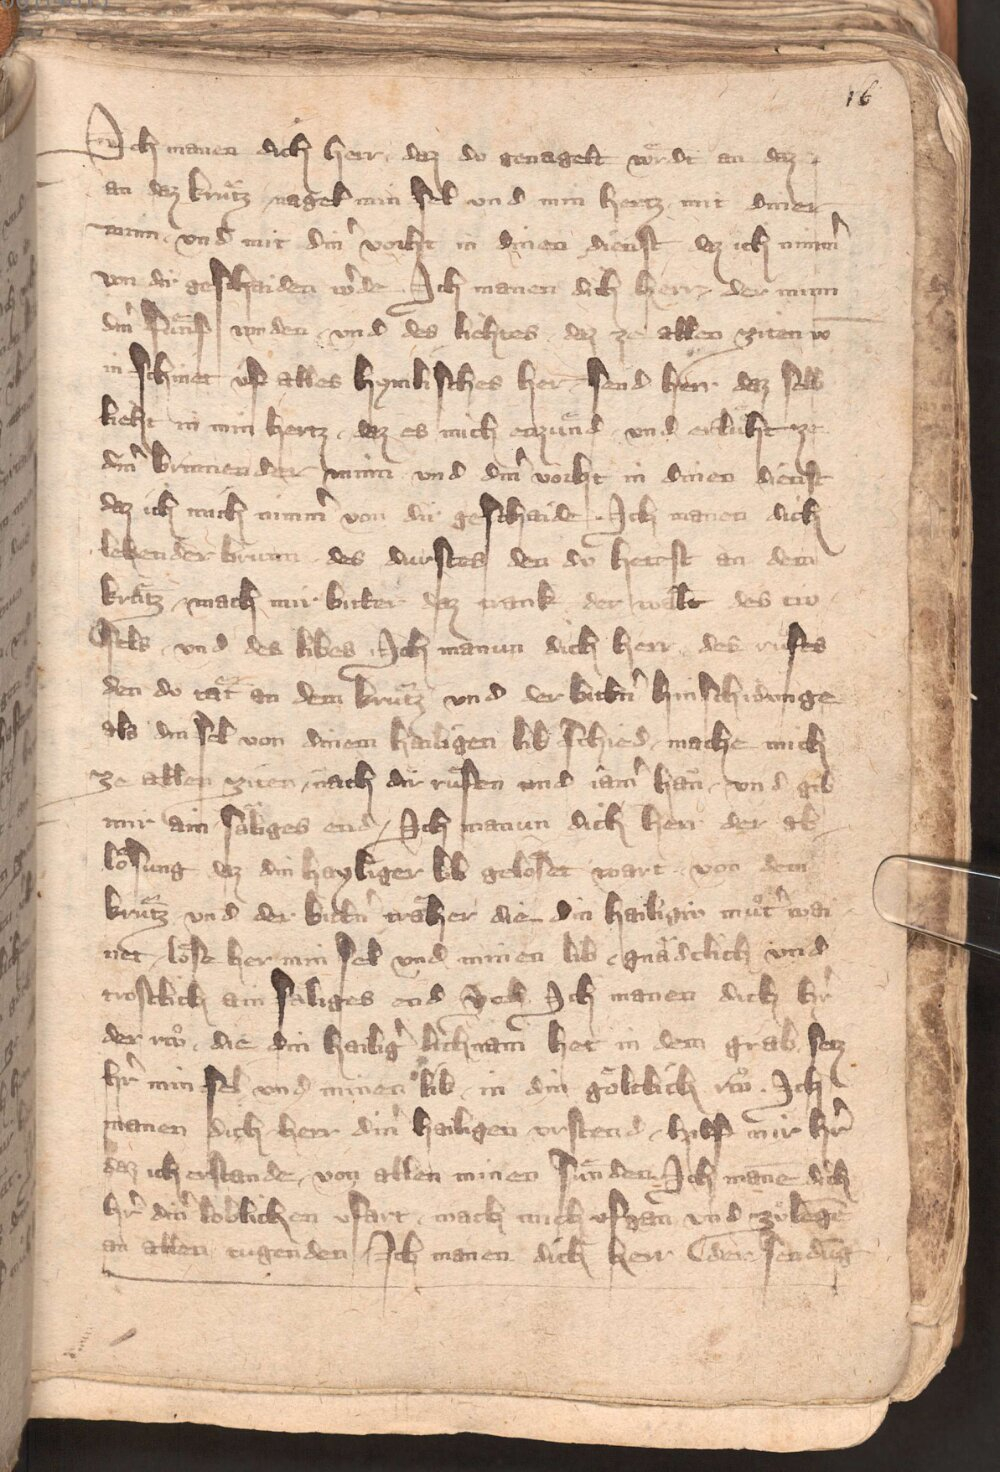 16
Ich manen dich herr daz du genagelt wördt an daz
an daz krütz nagel min sel vnd min hertz mit diner
minn vnd mit dinr vorht in dinen dienst dz ich nimmr
von dir geschaiden wrde Ich manen dich herr der minn
dinr fünf wnden vnd des liehtes daz ze allen ziten vo
in schinet vf alles hymlisches her send herr daz selb
lieht in min hertz daz es mich enzünd vnd erlüht ze
dinr brinnender minn vnd dinr vorht in dinen dienst
daz ich mich nimmr von dir geschaide Ich manen dich
lebender brunn des durstes den du hettest an dem
krütz mach mir bitter daz trank der welt des tiv
fels vnd des libes Ich manun dich herr des rufes
den do tät an dem krütz vnd der bittern hinschidunge
als din sel von dinem hailigen lib schied mache mich
ze allen ziten nach dir rüfen vnd iamr han vnd gib
mir ain säliges end Ich manun dich herr der ab
lösung dz din hayliger lib gelöset wart von dem
krütz vnd der bittern träher die din hailigiv mutr wai
net löse her min sel vnd minen lib gnädclich vnd
trostlich ain säliges end Ich manen dich hr
der rvo die din hailigr lichnam het in dem grab setz
hr min sel vnd minen lib in din götlich rvo Ich
manen dich herr dinr hailigen vrstend hilf mir hr
daz ich erstande von allen minen sünden Ich mane dich
hr dinr loblichen vfart mach mich vfgan vnd zulege
an allen tugenden Ich manen dich herr der sendung